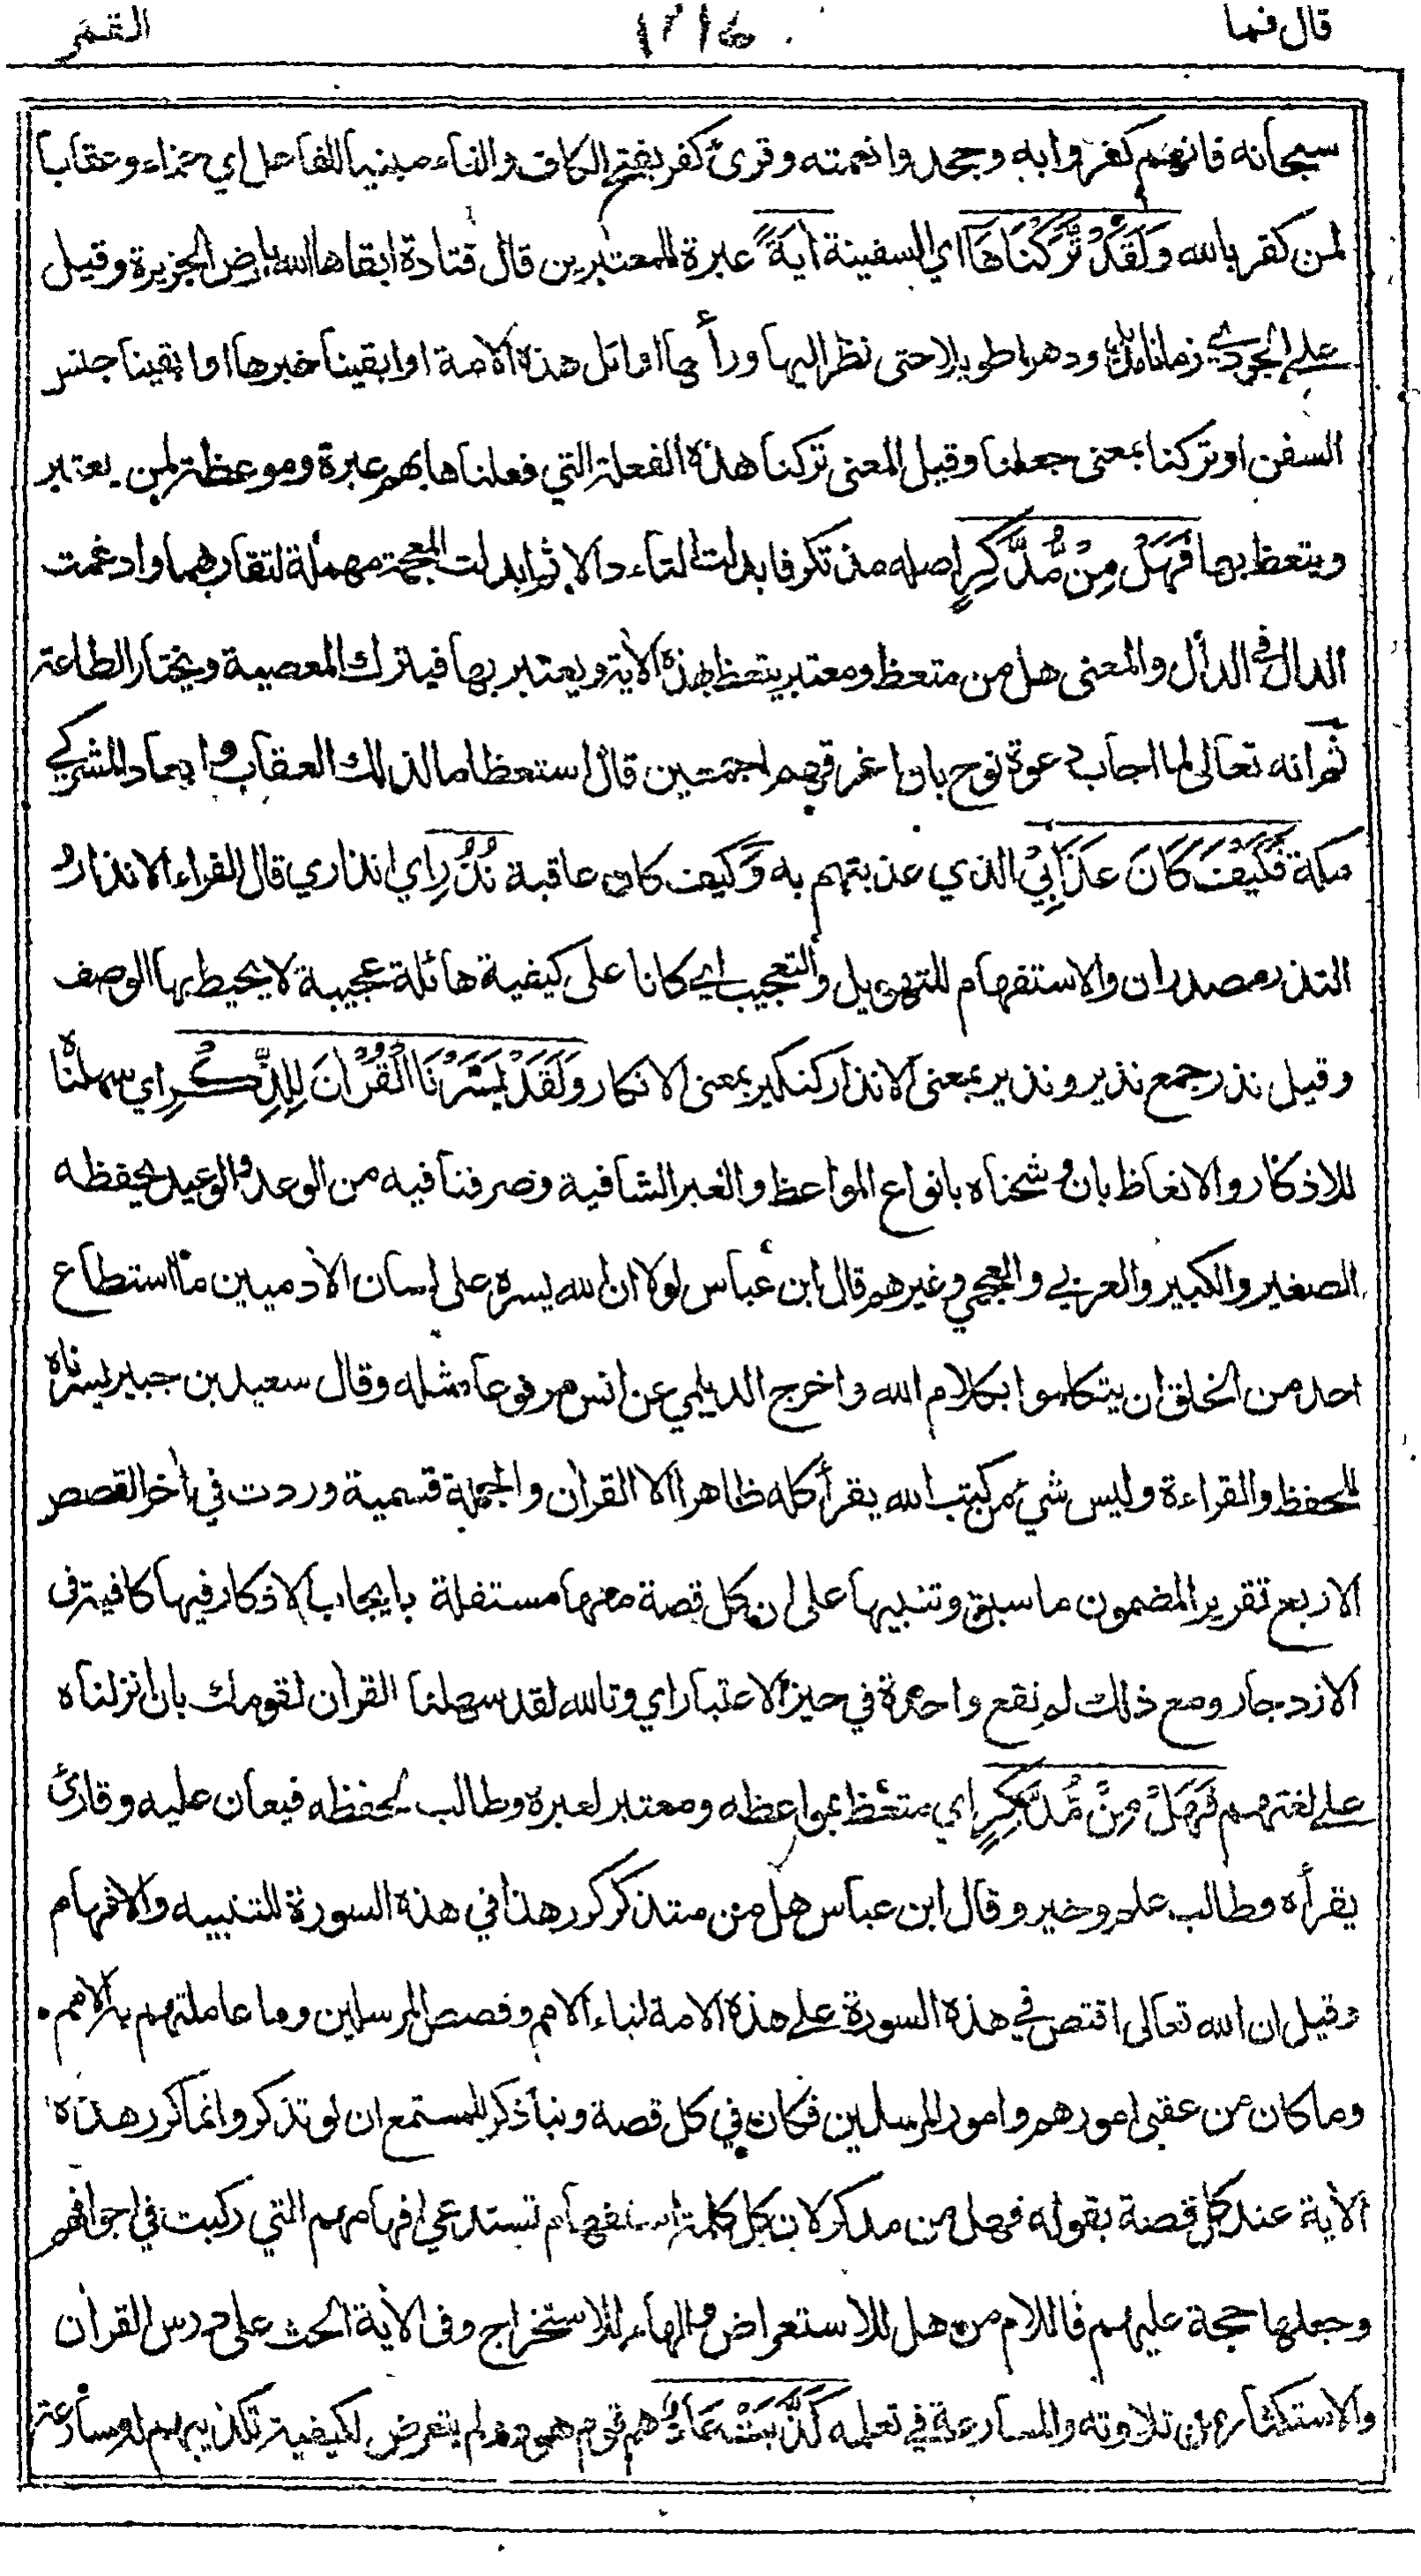 قال فما
القمر
سبحانه فانهم كفروا به وجحدوا نعمته وقرئ كفر بفتح الكاف والفاء مبنيا للفاعل اي جزاء وعقابا
لمن كفر بالله وَلَقَدْ تَّرَكْنَاهَا اي السفينة اٰيَةً عبرة للمعتبرين قال قتادة ابقاها الله بارض الجزيرة وقيل
على الجودي زمانا مديدا ودهرا طويلا حتى نظر اليها ورأها اوائل هذه الامة او ابقينا خبرها او ابقينا جنس
السفن او تركنا بمعنى جعلنا وقيل المعنى تركنا هذه الفعلة التي فعلناها بهم عبرة وموعظة لمن يعتبر
ويتعظ بها فَهَلْ مِنْ مُّدَّكِرٍ اصله مذتكر فابدلت التاء دالا ثم ابدلت المعجمة مهملة لتقاربهما وادغمت
الدال في الدال والمعنى هل من متعظ ومعتبر يتعظ بهذه الاٰية ويعتبر بها فيترك المعصية ويختار الطاعة
ثم انه تعالى لما اجاب دعوة نوح بان اغرقهم اجمعين قال استعظاما لذلك العقاب وايعادا لمشركي
مكة فَكَيْفَ كَانَ عَذَابِيْ الذي عذبتهم به وَكيف كان عاقبة نُذُرِ اي انذاري قال الفراء الانذار و
النذر مصدران والاستفهام للتهويل والتعجيب اي كانا على كيفية هائلة عجيبة لا يحيط بها الوصف
وقيل نذر جمع نذير ونذير بمعنى الانذار كنكير بمعنى الانكار وَلَقَدْ يَسَّرْنَا الْقُرْاٰنَ لِلذِّكْرِ اي سهلناه
للاذكار والاتعاظ بان وشحناه بانواع المواعظ والعبر الشافية وصرفنا فيه من الوعد والوعيد يحفظه
الصغير والكبير والعربي والعجمي وغيرهم قال ابن عباس لولا ان الله يسره على لسان الاٰدميين ما استطاع
احد من الخلق ان يتكلموا بكلام الله واخرج الديلمي عن انس مرفوعا مثله وقال سعيد بن جبير يسرناه
للحفظ والقراءة وليس شيء من كتب الله يقرأ كله ظاهرا الا القراٰن والجملة قسمية وردت في اٰخر القصص
الاربع تقرير المضمون ما سبق وتنبيها على ان كل قصة منها مستقلة بايجاب الاذكار فيها كافية فى
الازدجار ومع ذلك لم تقع واحدة في حيز الاعتبار اي وتالله لقد سهلنا القراٰن لقومك بان انزلناه
على لغتهم فَهَلْ مِنْ مُّدَّكِرٍ اي متعظ بمواعظه ومعتبر لعبره وطالب لحفظه فيعان عليه وقارئ
يقرأه وطالب علم وخير وقال ابن عباس هل من متذكر كرر هذا في هذه السورة للتنبيه والافهام
وقيل ان الله تعالى اقتص في هذه السورة على هذه الامة انباء الامم وقصص المرسلين وما عاملتهم به الامم
وما كان من عقبى امورهم وامور المرسلين فكان في كل قصة ونبأ ذكر للمستمع ان لو تذكر وانما كرر هذه
الاٰية عند كل قصة بقوله فهل من مدكر لان كل كلمة استفهام تستدعي افهامهم التي ركبت في اجوافهم
وجعلها حجة عليهم فاللام من هل للاستعراض والهاء للاستخراج وفى الاٰية الحث على درس القراٰن
والاستكثار من تلاوته والمسارعة في تعلمه كَذَّبَتْ عَادٌ هم قوم هود ولم يتعرض لكيفية تكذيبهم له مسارعة